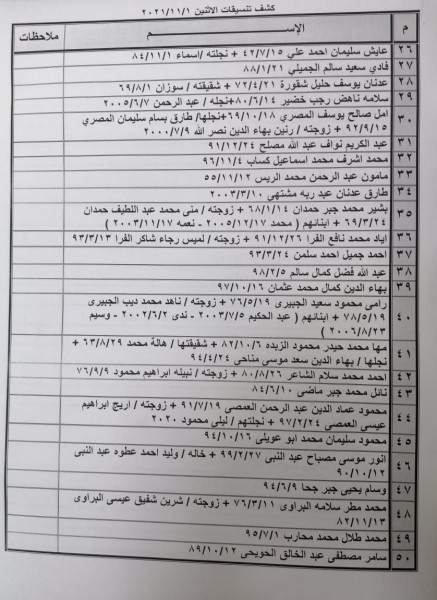 كشف تنسيقات الاثنين ٢٠٢١/١١/١
م الإسم ملاحظات
٢٦ عايش سليمان احمد علي ٤٢/٧/١٥ + نجلته /اسماء ٨٤/١١/١
٢٧ فادي سعيد سالم الجميلي ٨٨/١/٢١
٢٨ عدنان يوسف خليل شقورة ٧٢/٤/٢١ + شقيقته / سوزان ٦٩/٨/١
٢٩ سلامه ناهض رجب خضير ٨٠/٦/١٤+نجله / عبد الرحمن ٢٠٠٥/٦/٧
٣٠ امل صالح يوسف المصري ٦٩/١٠/١٨+نجلها/ طارق بسام سليمان المصري
٩٢/٩/١٥ + زوجته / رنين بهاء الدين نصر الله ٢٠٠٠/٧/٩
٣١ عبد الكريم نواف عبد الله مصلح ٩١/١٢/٢٤
٣٢ محمد اشرف محمد اسماعيل كساب ٩٦/١١/٤
٣٣ مامون عبد الرحمن محمد الريس ٥٥/١١/١٢
٣٤ طارق عدنان عبد ربه مشتهي ٢٠٠٣/٣/١٠
٣٥ بشير محمد جبر حمدان ٦٨/١/١٤ + زوجته / منى محمد عبد اللطيف حمدان
٦٩/٣/٢٤ + ابنائهم ( محمد ٢٠٠٥/١٢/١٧ - نعمه ٢٠٠٣/١١/١٧ )
٣٦ اياد محمد نافع الفرا ٩١/١٢/٢٦ + زوجته / لميس رجاء شاكر الفرا ٩٣/٣/١٣
٣٧ احمد جميل احمد سلمن ٩٣/٣/٢٤
٣٨ عبد الله فضل كمال سالم ٩٨/٢/٥
٣٩ بهاء الدين كمال محمد عثمان ٩٧/١٠/١٦
٤٠ رامى محمود سعيد الجبيرى ٧٦/٥/١٩ + زوجته / ناهد محمد ديب الجبيرى
٧٨/٥/١٩ + ابنائهم ( عبد الحكيم ٢٠٠٣/٧/٥ - ندى ٢٠٠٢/٦/٢ - وسيم
٢٠٠٦/٨/٢٣ )
٤١ مها محمد حيدر محمود الزبده ٨٢/١٠/٦ + شقيقتها / هالة محمد ٦٣/٨/٢٩ +
نجلها / بهاء الدين سعد موسى مناحي ٩٤/٤/٢٤
٤٢ احمد محمد سلام الشاعر ٨٠/٨/٢٦ + زوجته / نبيله ابراهيم محمود ٧٦/٩/٩
٤٣ نائل محمد جبر ماضى ٨٤/٦/١٠
٤٤ محمود عماد الدين عبد الرحمن العمصي ٩١/٧/١٩ + زوجته / اريج ابراهيم
عيسى العمصي ٩٧/٢/٢٤ + نجلتهم / ليلى محمود ٢٠٢٠
٤٥ محمود سليمان محمد ابو عويلى ٩٤/١٠/١٦
٤٦ انور موسى مصباح عبد النبى ٩٩/٢/٢٧ + خاله / وليد احمد عطوه عبد النبى
٩٠/١٠/١٢
٤٧ وسام يحيى جبر جحا ٩٤/٦/٩
٤٨ محمد مطر سلامه البراوى ٧٦/٣/١١ + زوجته / شرين شفيق عيسى البراوى
٨٢/١١/١٣
٤٩ محمد طلال محمد محارب ٩٥/٧/١
٥٠ سامر مصطفى عبد الخالق الحويحى ٨٩/١٠/١٢